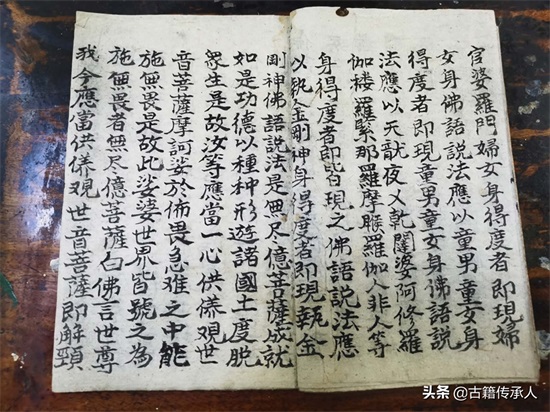 官婆羅門婦女身得度者即現婦
女身佛語說法應以童男童女身
得度者即現童男童女身佛語說
法應以天龍夜乂乹闥婆阿修羅
伽楼羅緊那羅摩睺羅伽人非人等
身得度者即皆現之佛語說法應
以执金剛神身得度者即現執金
剛神佛語說法是無尽億菩薩成就
如是功德以種种形遊諸國土度脱
衆生是故汝等應當一心供儀观世
音菩薩摩訶娑於佈畏急难之中能
施無畏是故此娑婆世界皆號之為
施無畏者無尽億菩薩白佛言世尊
我今應當供儀观世音菩薩即解頸
头条 @古籍传承人